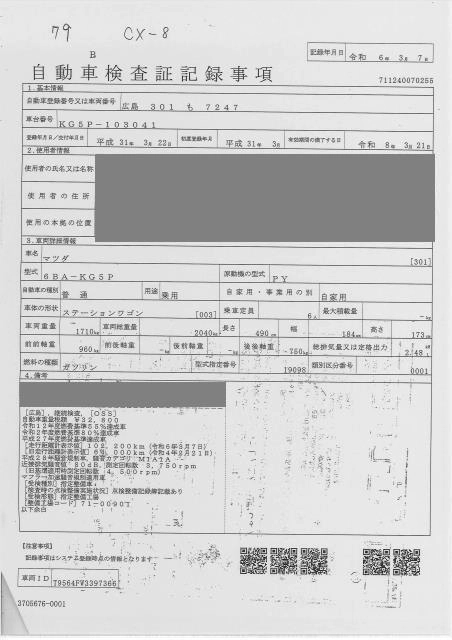 79 CX-8
B
自動車検査証記録事項
記録年月日 令和 6年 3月 7日
711240070255
1.基本情報
自動車登録番号又は車両番号 広島 301 も 7247
車台番号 KG5P-103041
登録年月日/交付年月日 平成 31年 3月 22日 初度登録年月 平成 31年 3月 有効期間の満了する日 令和 8年 3月 21日
2.使用者情報
使用者の氏名又は名称
使用者の住所
使用の本拠の位置
3.車両詳細情報
車名 マツダ [301]
型式 6BA-KG5P 原動機の型式 PY
自動車の種別 普通 用途 乗用 自家用・事業用の別 自家用
車体の形状 ステーションワゴン [003] 乗車定員 6人 最大積載量 -kg
車両重量 1710kg 車両総重量 2040kg 長さ 490cm 幅 184cm 高さ 173cm
前前軸重 960kg 前後軸重 -kg 後前軸重 -kg 後後軸重 750kg 総排気量又は定格出力 2.48L
燃料の種類 ガソリン 型式指定番号 19098 類別区分番号 0001
4.備考
[広島],継続検査,[OSS]
自動車重量税額 ¥32,800
令和12年度燃費基準55%達成車
令和2年度燃費基準80%達成車
平成27年度燃費基準達成車
[走行距離計表示値]102,200km(令和6年3月7日)
[旧走行距離計表示値] 000km(令和4年2月21日)
平成28年騒音規制車,騒音カテゴリ M1A1A
近接排気騒音値 80dB,測定回転数 3,750rpm
(旧基準適用時測定回転数 4,500rpm)
マフラー加速騒音規制適用車
[受検種別]指定整備車
[受検時の点検整備実施状況]点検整備記録簿記載あり
[検査形態]指定整備工場
[整備工場コード]71-00901
以下余白
【注意事項】
記録事項はシステム登録時点の情報となります
車両ID T9564FV3397366
3705676-0001